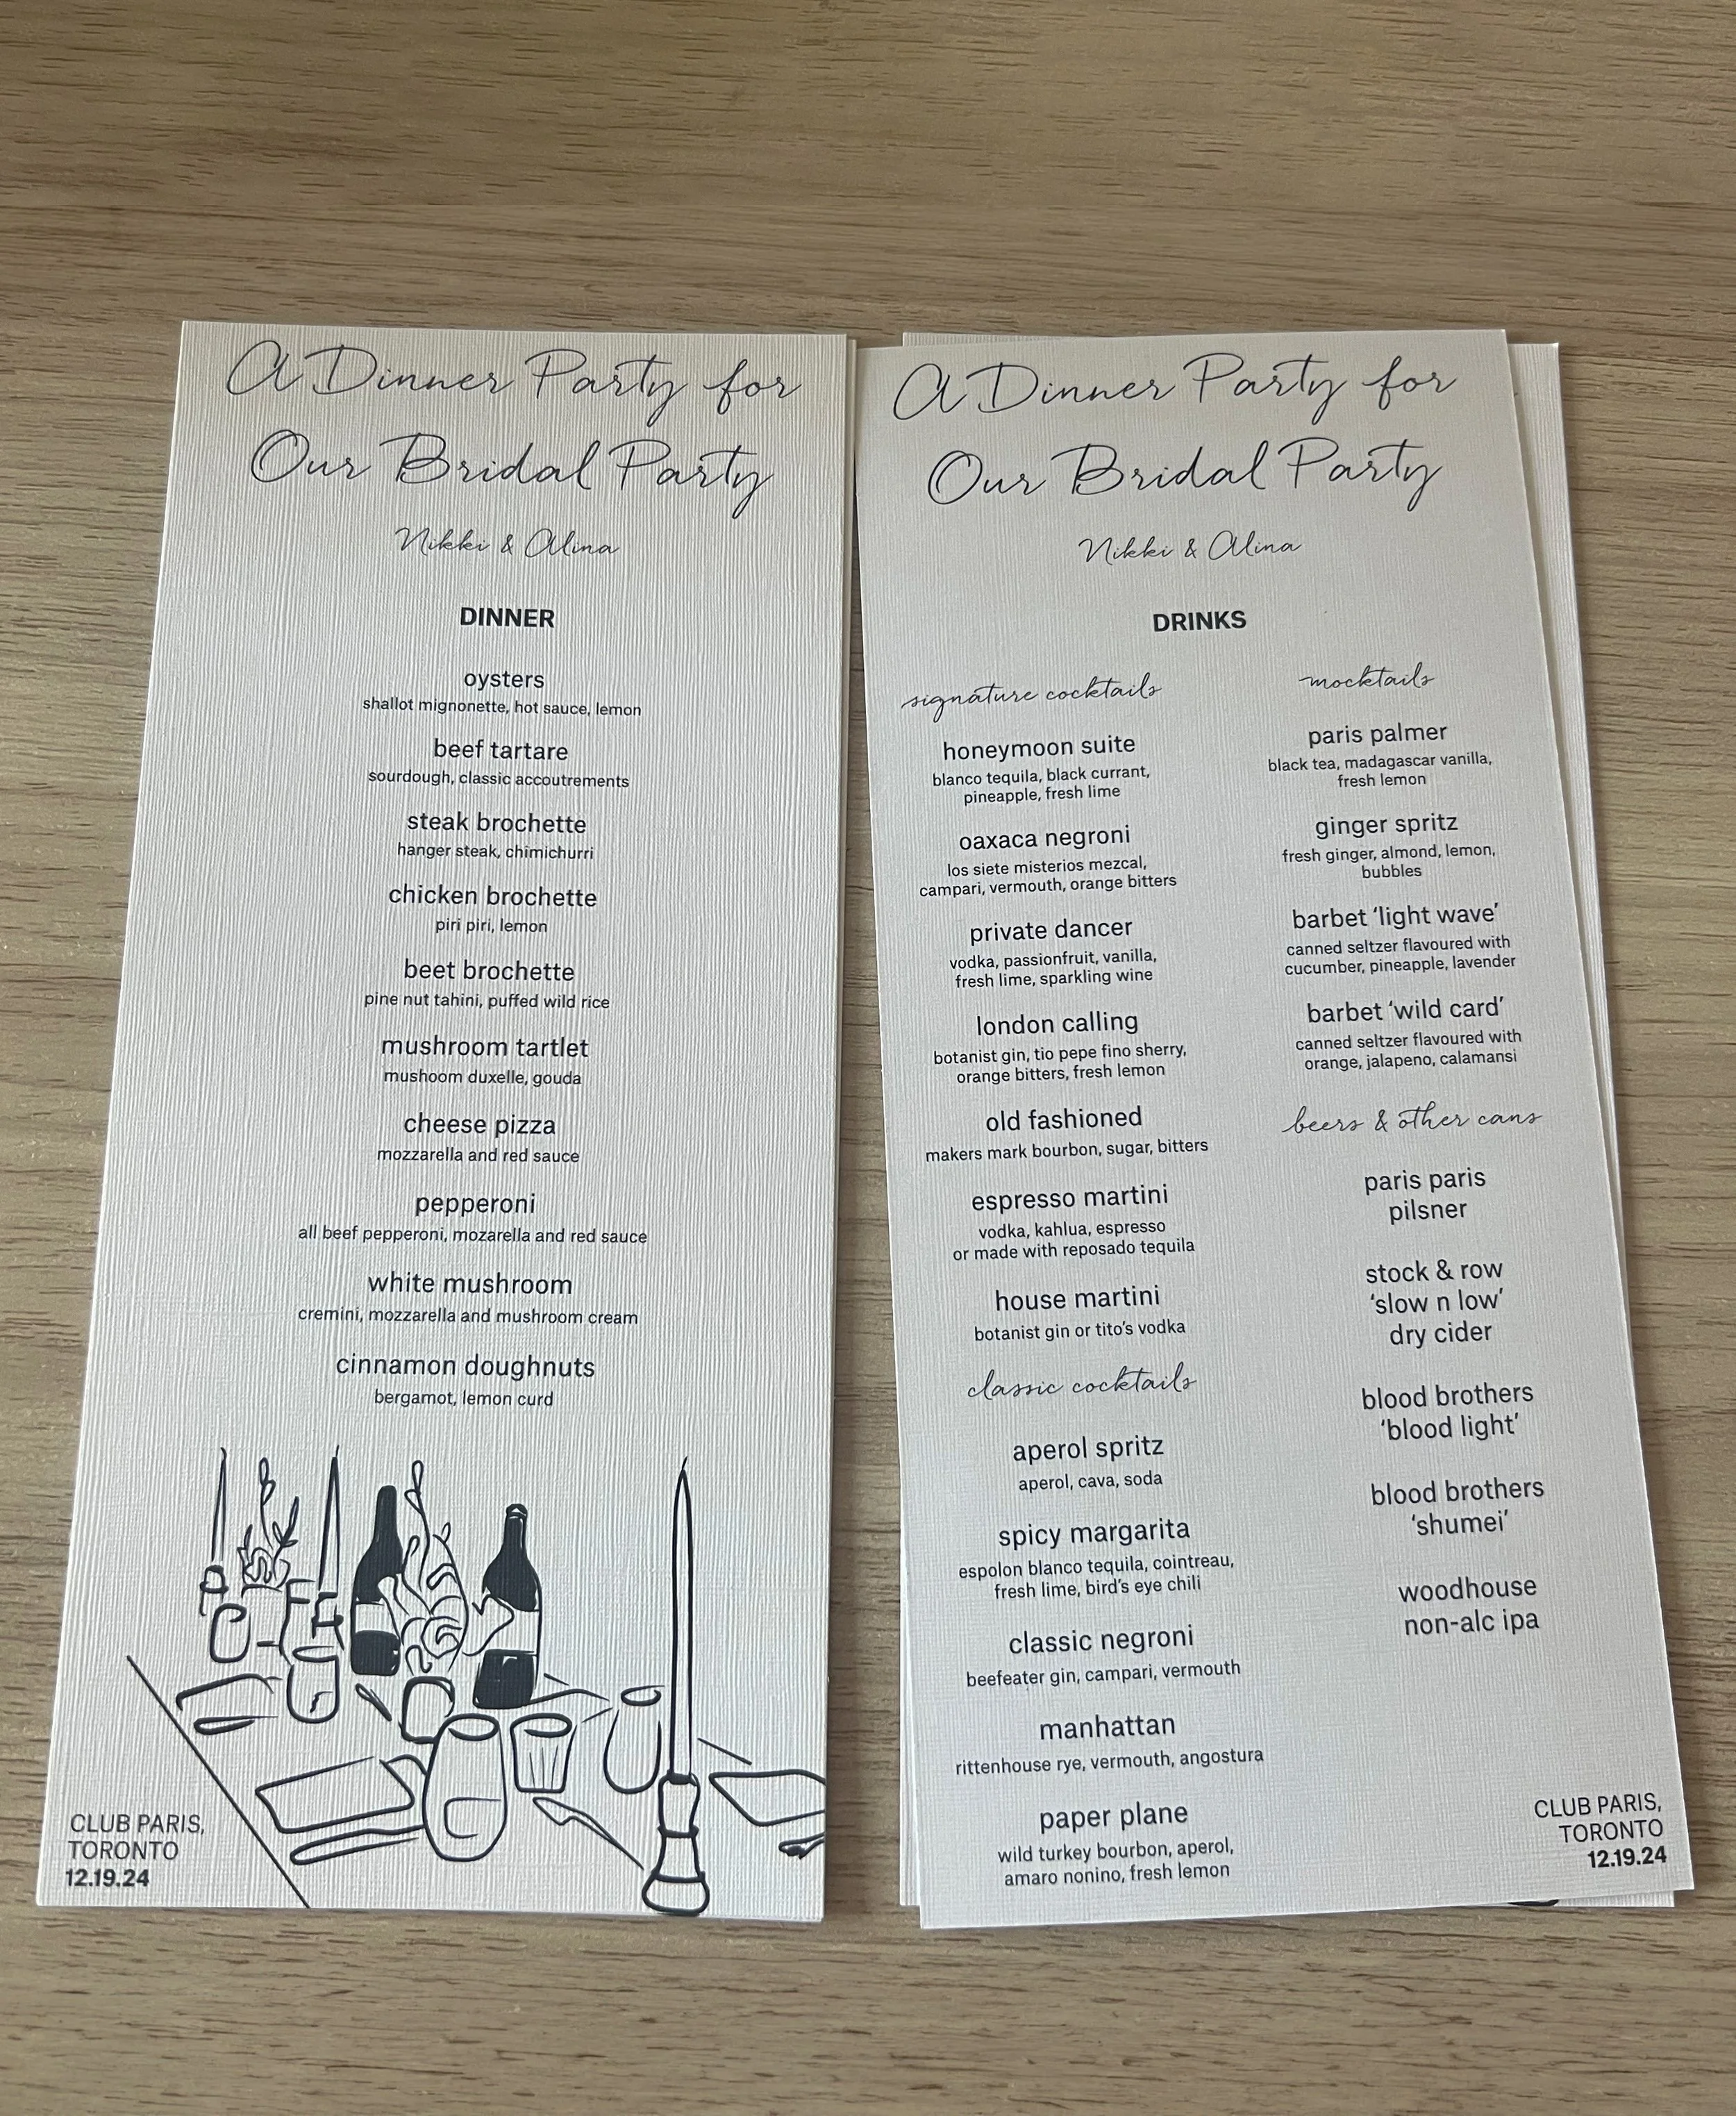 A Dinner Party for
Our Bridal Party
Nikki & Alina
DINNER
oysters
shallot mignonette, hot sauce, lemon
beef tartare
sourdough, classic accoutrements
steak brochette
hanger steak, chimichurri
chicken brochette
piri piri, lemon
beet brochette
pine nut tahini, puffed wild rice
mushroom tartlet
mushoom duxelle, gouda
cheese pizza
mozzarella and red sauce
pepperoni
all beef pepperoni, mozarella and red sauce
white mushroom
cremini, mozzarella and mushroom cream
cinnamon doughnuts
bergamot, lemon curd
CLUB PARIS,
TORONTO
12.19.24
A Dinner Party for
Our Bridal Party
Nikki & Alina
DRINKS
signature cocktails
honeymoon suite
blanco tequila, black currant,
pineapple, fresh lime
oaxaca negroni
los siete misterios mezcal,
campari, vermouth, orange bitters
private dancer
vodka, passionfruit, vanilla,
fresh lime, sparkling wine
london calling
botanist gin, tio pepe fino sherry,
orange bitters, fresh lemon
old fashioned
makers mark bourbon, sugar, bitters
espresso martini
vodka, kahlua, espresso
or made with reposado tequila
house martini
botanist gin or tito's vodka
classic cocktails
aperol spritz
aperol, cava, soda
spicy margarita
espolon blanco tequila, cointreau,
fresh lime, bird's eye chili
classic negroni
beefeater gin, campari, vermouth
manhattan
rittenhouse rye, vermouth, angostura
paper plane
wild turkey bourbon, aperol,
amaro nonino, fresh lemon
mocktails
paris palmer
black tea, madagascar vanilla,
fresh lemon
ginger spritz
fresh ginger, almond, lemon,
bubbles
barbet 'light wave'
canned seltzer flavoured with
cucumber, pineapple, lavender
barbet 'wild card'
canned seltzer flavoured with
orange, jalapeno, calamansi
beers & other cans
paris paris
pilsner
stock & row
'slow n low'
dry cider
blood brothers
'blood light'
blood brothers
'shumei'
woodhouse
non-alc ipa
CLUB PARIS,
TORONTO
12.19.24